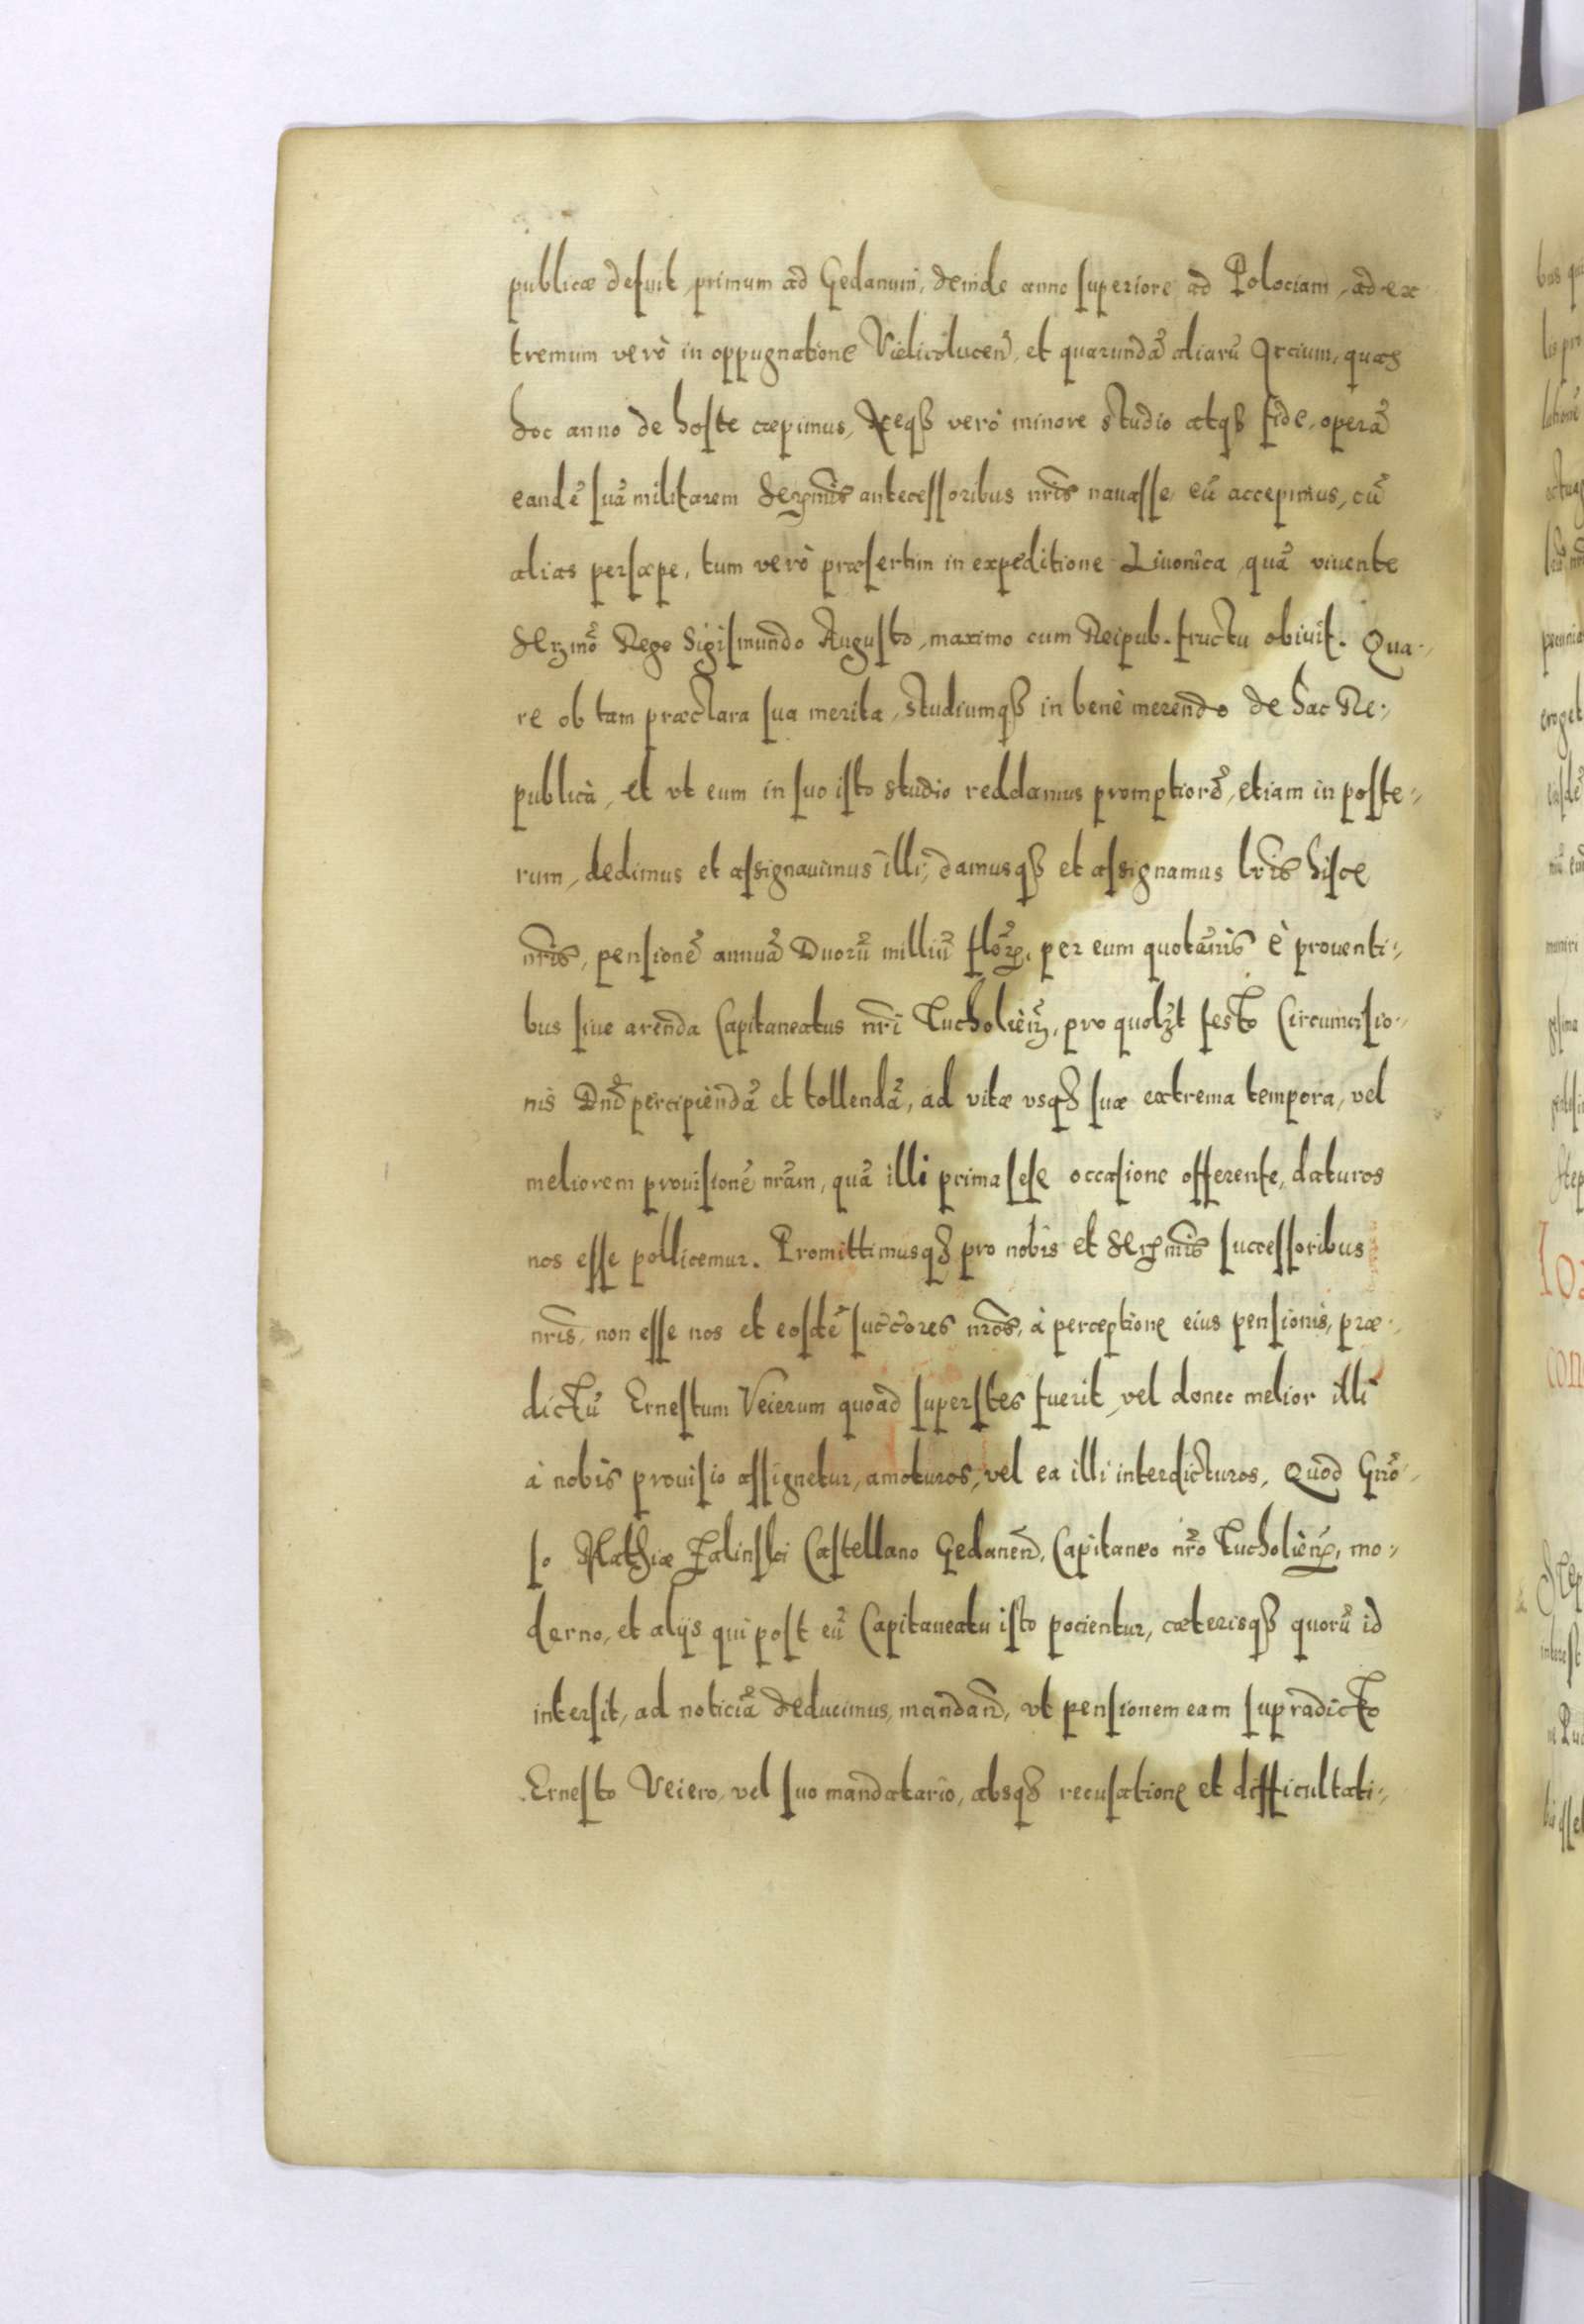 publicæ defuit, primum ad Gedanum, deinde anno superiore ad Polociam, ad ex
tremum verò in oppugnatione Vielicolucen̄, et quarundā aliarū Arcium, quas
hoc anno de hoste cæpimus, Neqꝫ verò minore studio atqꝫ fide, operā
eandē suā militarem Serᵐⁱˢ antecessoribus nr̄is nauasse eū accepimus, cū
alias persæpe, tum verò præsertim in expeditione Liuonica quā viuente
Serᵐᵒ Rege Sigismundo Augusto, maximo cum Reipub. fructu obiuit. Qua-
re ob tam præclara sua merita, studiumqꝫ in benè merendo de hac Re-
publica, et vt eum in suo isto studio reddamus promptiorē, etiam in poste-
rum, dedimus et assignauimus illi, damusqꝫ et assignamus lr̄is hisce
nr̄is, pensionē annuā Duorū milliū flor̄, per eum quotānis è prouenti-
bus siue arenda Capitaneatus nr̄i Tucholien̄, pro quolꝫt festo Circumcisio-
nis Dn̄i percipiendā et tollendā, ad vitæ vsqꝫ suæ extrema tempora, vel
meliorem prouisionē nr̄am, quā illi prima sese occasione offerente, daturos
nos esse pollicemur. Promittimusqꝫ pro nobis et Serᵐⁱˢ successoribus
nr̄is, non esse nos et eosdē succ̄ores nr̄os, à perceptione eius pensionis, præ-
dictū Ernestum Veierum quoad superstes fuerit, vel donec melior illi
à nobis prouisio assignetur, amoturos, vel ea illi interdicturos, Quod Gnō-
so Mathiæ Zalinski Castellano Gedanen̄, Capitaneo nr̄o Tucholien̄, mo-
derno, et alijs qui post eū Capitaneatu isto pocientur, cæterisqꝫ quorū id
intersit, ad noticiā deducimus, mandan̄, vt pensionem eam supradicto
Ernesto Veiero, vel suo mandatario, absqꝫ recusatione et difficultati-